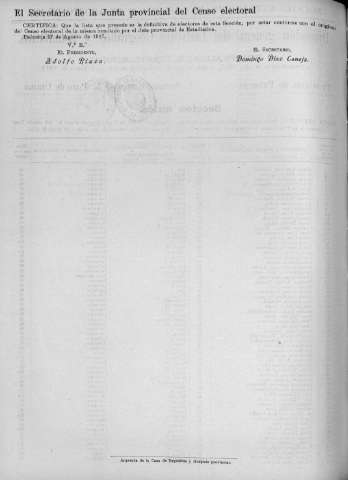 El Secretario de la Junta provincial del Censo electoral
CERTIFICA: Que la lista que precede es la definitiva de electores de esta Sección, por estar conforme con el original
del Censo electoral de la misma remitido por el Jefe provincial de Estadística.
Palencia 27 de Agosto de 1917.
V.º B.º
EL PRESIDENTE,
Adolfo Riaza.
EL SECRETARIO,
Domingo Díaz Caneja.
Imprenta de la Casa de Expósitos y Hospicio provincial.